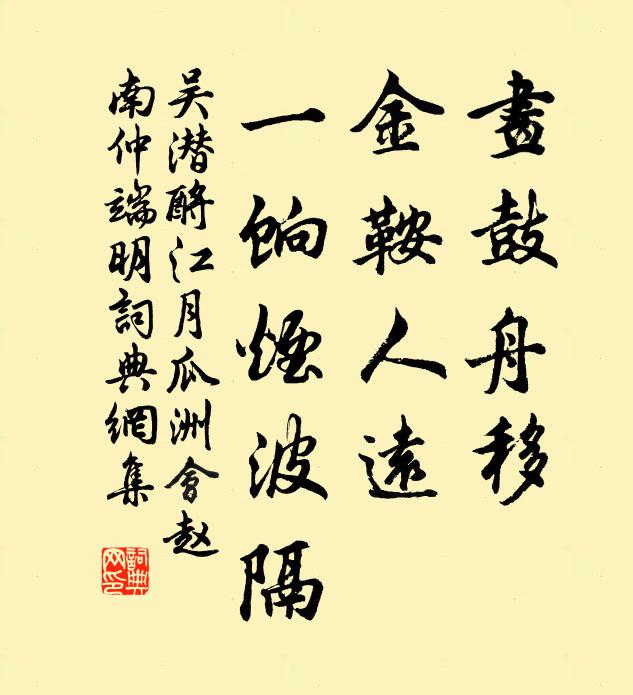 畫鼓舟移
金鞍人遠
一餉煙波隔
吴潜酹江月瓜洲會趙
南仲端明詞典網集
詞典网印